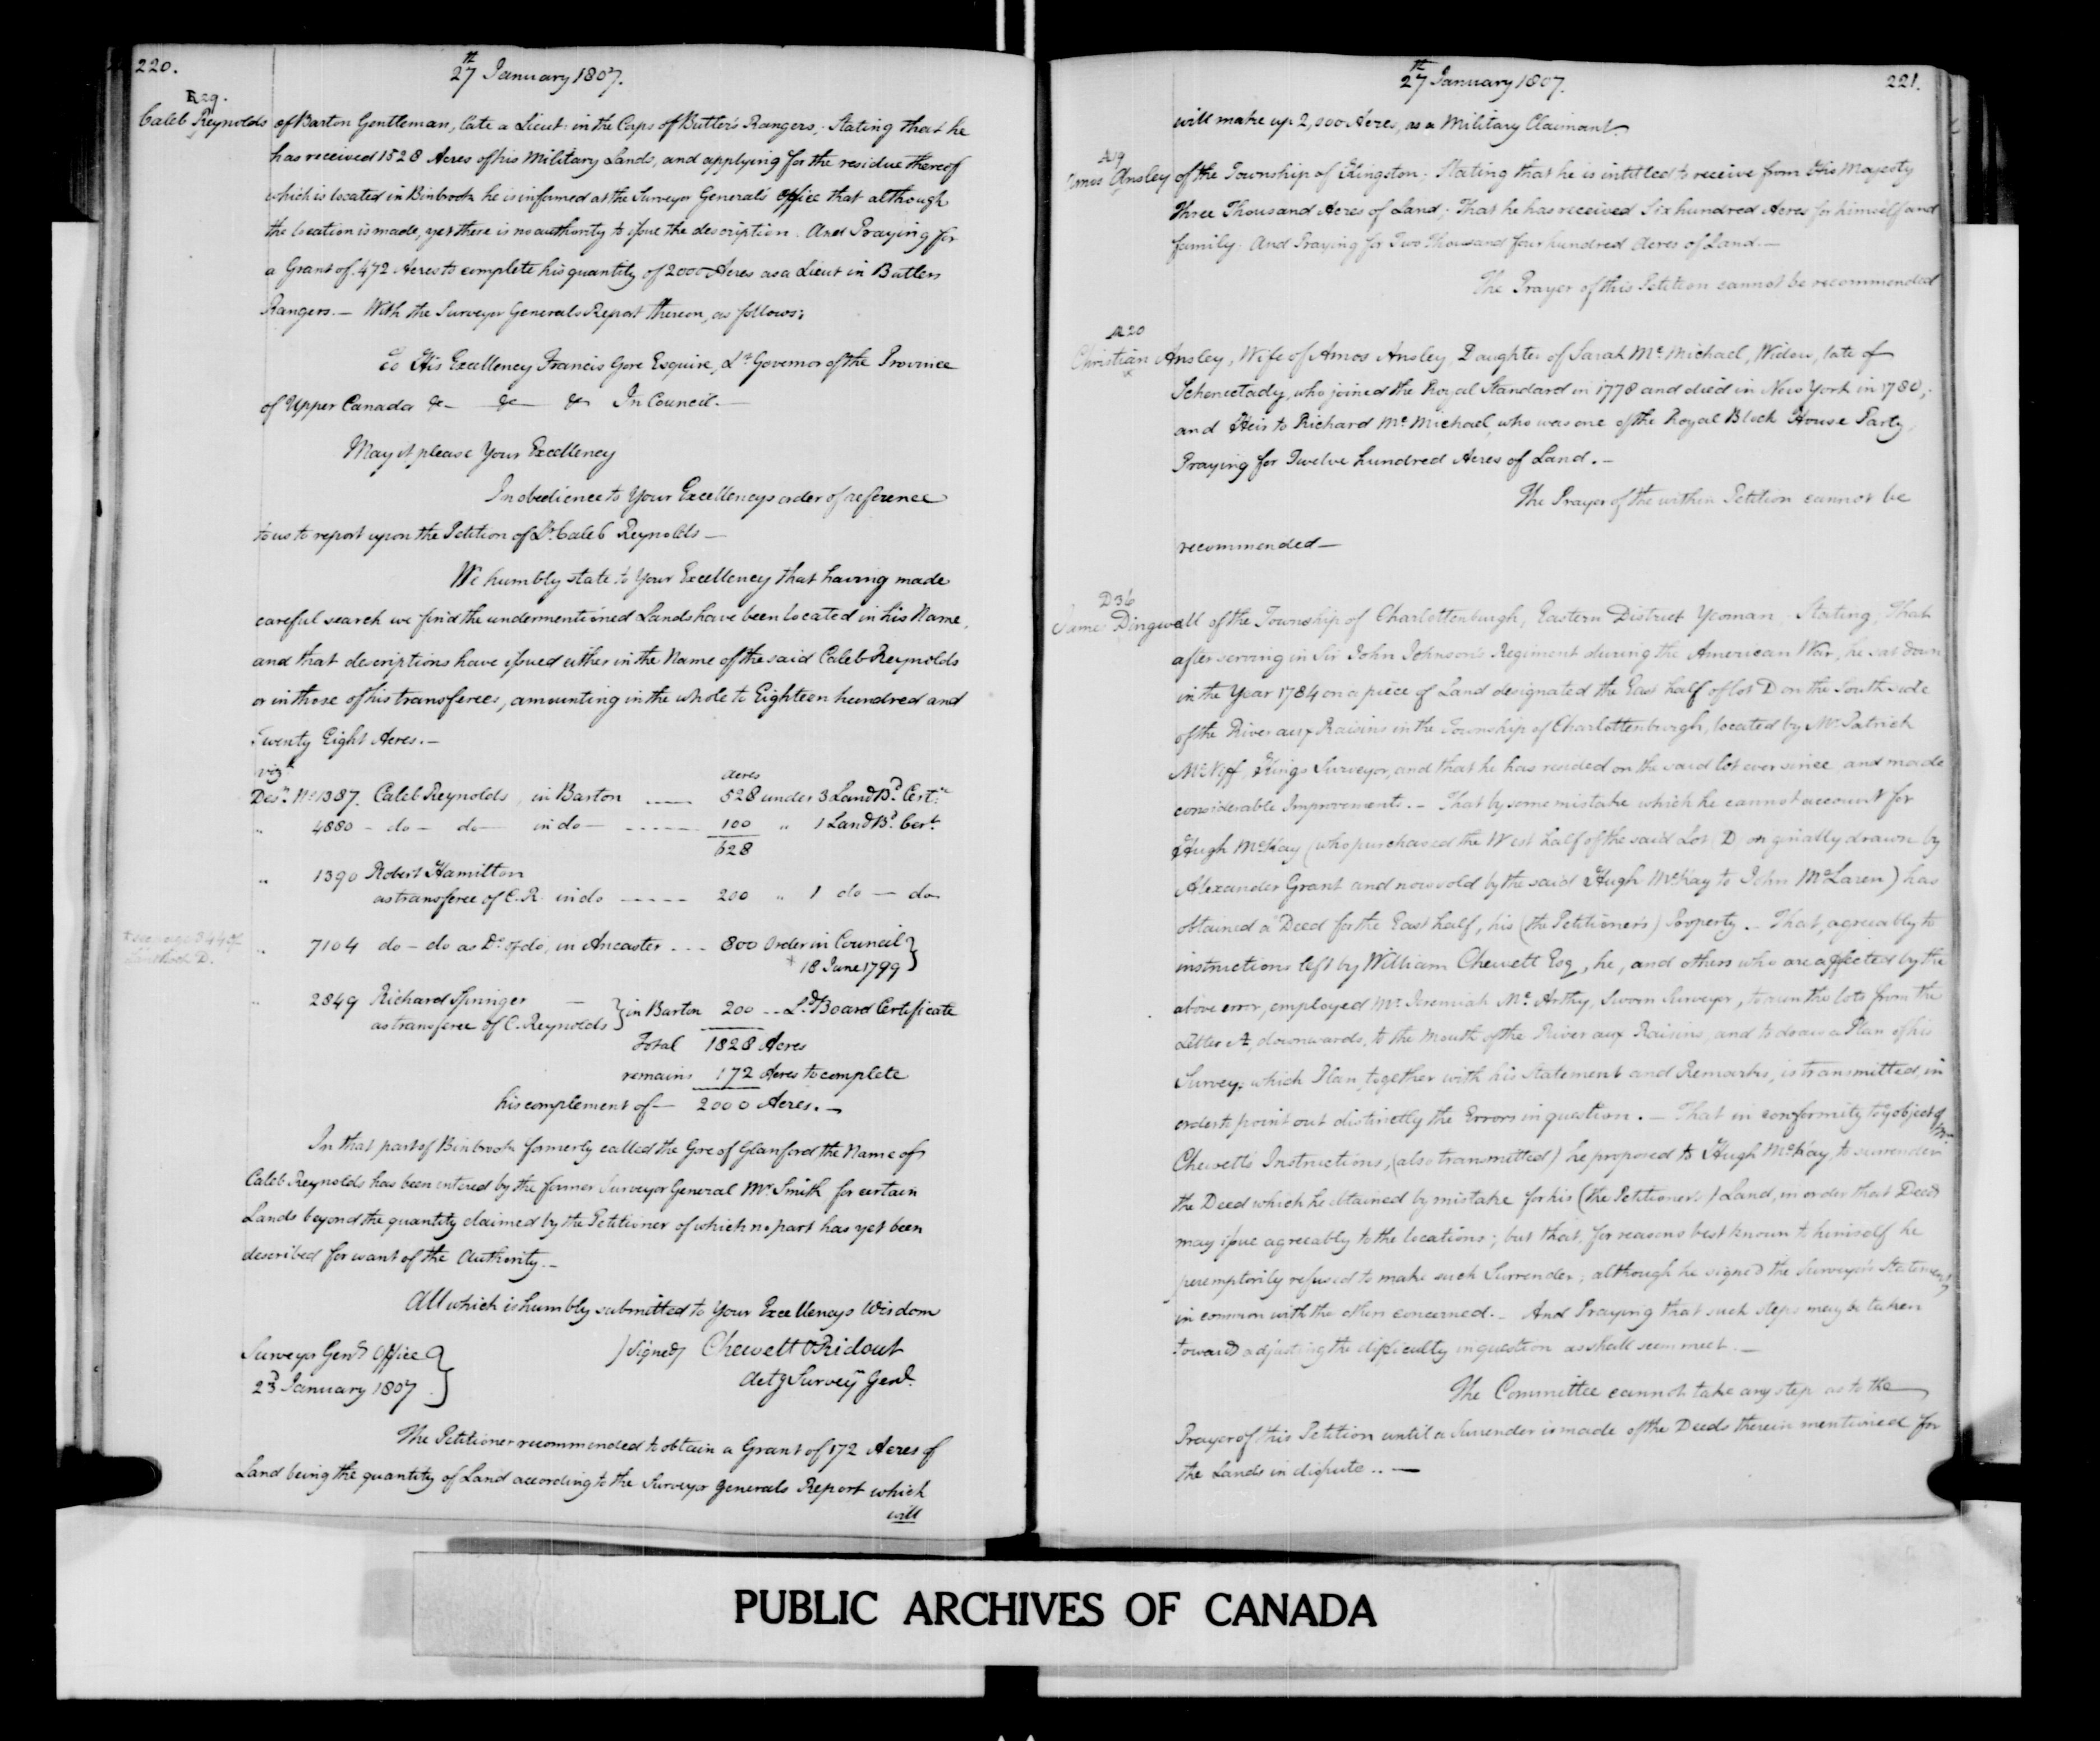 220.
27th January 1807.
R29.
Caleb Reynolds of Barton Gentleman, late a Lieut: in the Corps of Butler's Rangers, Stating that he
has received 1528 Acres of his Military Lands, and applying for the residue thereof
which is located in Binbrook he is informed at the Surveyor General's Office that although
the location is made, yet there is no authority to issue the description. And Praying for
a Grant of 472 Acres to complete his quantity of 2000 Acres as a Lieut in Butlers
Rangers. — With the Surveyor Generals Report thereon, as follows;
To His Excellency Francis Gore Esquire, Lt. Governor of the Province
of Upper Canada &c — &c — &c In Council. —
May it please Your Excellency
In obedience to Your Excellencys order of reference
to us to report upon the Petition of Lt. Caleb Reynolds —
We humbly state to Your Excellency that having made
careful search we find the undermentioned Lands have been located in his Name,
and that descriptions have issued either in the Name of the said Caleb Reynolds
or in those of his transferees, amounting in the whole to Eighteen hundred and
Twenty Eight Acres. —
vizt
acres
Desn. No 1387. Caleb Reynolds, in Barton ..... 528 under 3 Land Bd. Certs.
" 4880 — do — do — in do — ..... 100 " 1 Land Bd. Cert.
628
" 1390 Robert Hamilton
as transferee of C.R. in do ..... 200 " 1 do — do
7104 do — do as Do. of do, in Ancaster ... 800 Order in Council }
* 18 June 1799
* see page 344 of
Land book D.
2849 Richard Springer —
as transferee of C. Reynolds } in Barton 200 .. Ld. Board Certificate
Total 1828 Acres
remains 172 Acres to complete
his complement of — 2000 Acres. —
In that part of Binbrook formerly called the Gore of Glanford the Name of
Caleb Reynolds has been entered by the former Surveyor General Mr. Smith for certain
Lands beyond the quantity claimed by the Petitioner of which no part has yet been
described for want of the Authority. —
All which is humbly submitted to Your Excellencys Wisdom
Surveyor Genls Office }
23d January 1807
(signed) Chewett & Ridout
Actg Surveyrs Genl.
The Petitioner recommended to obtain a Grant of 172 Acres of
Land being the quantity of Land according to the Surveyor Generals Report which
will
27th January 1807.
221.
will make up 2,000 Acres, as a Military Claimant.
A19
Amos Ansley of the Township of Kingston. Stating that he is intitled to receive from His Majesty
Three Thousand Acres of Land; That he has received Six hundred Acres for himself and
family. And Praying for Two Thousand four hundred Acres of Land. —
The Prayer of this Petition cannot be recommended
A20
Christian Ansley, Wife of Amos Ansley, Daughter of Sarah Mc.Michael, Widow, late of
Schenectady, who joined the Royal Standard in 1778 and died in New York in 1780;
and Heir to Richard Mc.Michael, who was one of the Royal Block House Party,
Praying for Twelve hundred Acres of Land. —
The Prayer of the within Petition cannot be
recommended —
D36
James Dingwall of the Township of Charlottenburgh, Eastern District Yeoman. Stating That
after serving in Sir John Johnson's Regiment during the American War, he sat down
in the Year 1784 on a piece of Land designated the East half of lot D on the South side
of the River aux Raisins in the Township of Charlottenburgh, located by Mr Patrick
McNiff, Kings Surveyor, and that he has resided on the said lot ever since, and made
considerable Improvements. — That by some mistake which he cannot account for
Hugh McKay (who purchased the West half of the said Lot (D) originally drawn by
Alexander Grant and now sold by the said Hugh McKay to John McLaren) has
obtained a Deed for the East half, his (the Petitioner's) Property. — That, agreeably to
instructions left by William Chewett Esq, he, and others who are affected by the
above error, employed Mr. Jeremiah Mc.Arthy, Sworn Surveyor, to run the lots from the
Letter A, downwards, to the Mouth of the River aux Raisins, and to draw a Plan of his
Survey; which Plan, together with his Statement and Remarks, is transmitted, in
order to point out distinctly the Errors in question. — That in conformity to ye object of Mr.
Chewett's Instructions, (also transmitted) he proposed to Hugh McKay, to surrender
the Deed which he obtained by mistake for his (the Petitioner's) Land, in order that Deeds
may issue agreeably to the locations; but that, for reasons best known to himself he
peremptorily refused to make such Surrender; although he signed the Surveyor's Statement,
in common with the others concerned. — And Praying that such steps may be taken
toward adjusting the difficulty in question as shall seem meet. —
The Committee cannot take any step as to the
Prayer of this Petition until a Surrender is made of the Deeds therein mentioned for
the Lands in dispute .. —
PUBLIC ARCHIVES OF CANADA